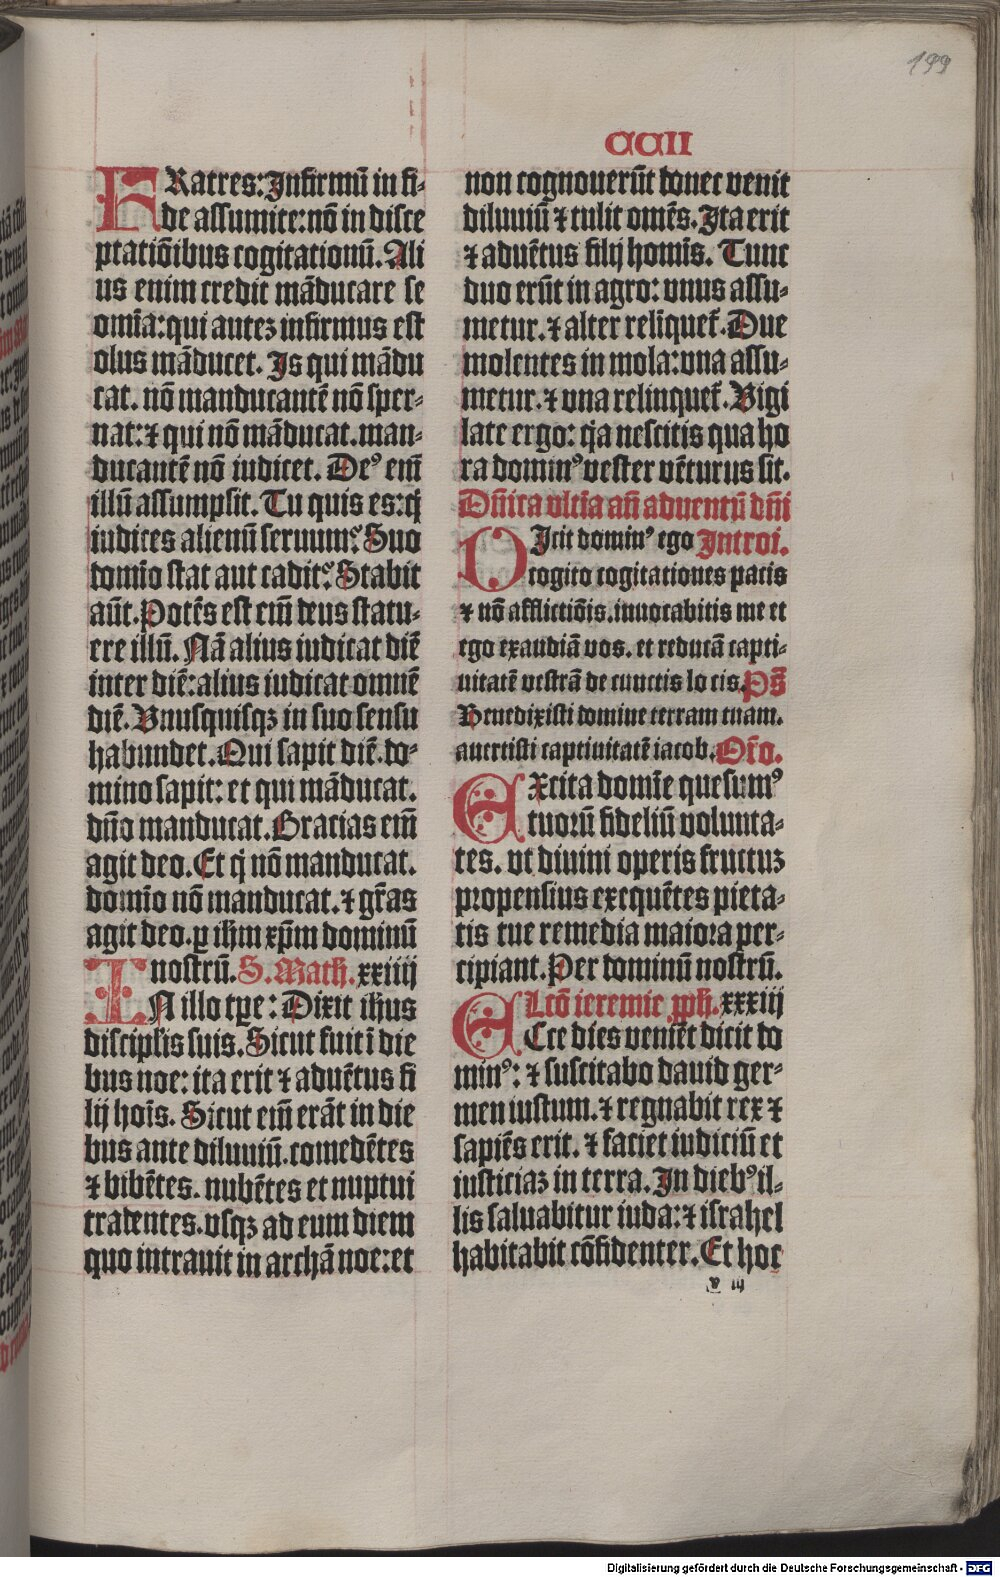 199
CCII
FRatres: Infirmū in fi⸗
de assumite: nō in disce
ptatiōibus cogitationū. Ali
us enim credit māducare se
omīa: qui autez infirmus est
olus māducet. Is qui mādu
cat. nō manducantē nō sper⸗
nat: ⁊ qui nō māducat. man⸗
ducantē nō iudicet. Deꝰ em̄
illū assumpsit. Tu quis es: q̇
iudices alienū seruum? Suo
domīo stat aut cadit? Stabit
aūt. Potēs est em̄ deus statu⸗
ere illū. Nā alius iudicat diē
inter diē: alius iudicat omnē
diē. Vnusquisqꝫ in suo sensu
habundet. Qui sapit diē. do⸗
mino sapit: et qui māducat.
dn̄o manducat. Gracias em̄
agit deo. Et q̇ nō manducat.
domīo nō manducat. ⁊ gr̄as
agit deo. ꝑ ihm xp̄m dominū
nostrū. S. Math. xxiiij
IN illo tꝑe: Dixit ihus
discipl̄is suis. Sicut fuit ī die
bus noe: ita erit ⁊ aduētus fi
lij hoīs. Sicut em̄ erāt in die
bus ante diluuiū. comedētes
⁊ bibētes. nubētes et nuptui
tradentes. vsqꝫ ad eum diem
quo intrauit in archā noe: et
non cognouerūt donec venit
diluuiū ⁊ tulit omēs. Ita erit
⁊ aduētus filij homīs. Tunc
duo erūt in agro: vnus assu⸗
metur. ⁊ alter relīquet̄. Due
molentes in mola: vna assu⸗
metur. ⁊ vna relinquet̄. Vigi
late ergo: q̇a nescitis qua ho
ra dominꝰ vester vēturus sit.
Dn̄ica vltīa an̄ aduentū dn̄i
DIcit dominꝰ ego Introi.
cogito cogitationes pacis
⁊ nō afflictiōis. inuocabitis me et
ego exaudiā vos. et reducā capti⸗
uitatē vestrā de cunctis lo cis. Ps̄
Benedixisti domine terram tuam.
auertisti captiuitatē iacob. Or̄o.
EXcita domīe quesumꝰ
tuorū fideliū volunta⸗
tes. vt diuini operis fructuz
propensius exequētes pieta⸗
tis tue remedia maiora per⸗
cipiant. Per dominū nostrū.
Lc̄o ieremie ꝓph. xxxiij
ECce dies veniēt dicit do
minꝰ: ⁊ suscitabo dauid ger⸗
men iustum. ⁊ regnabit rex ⁊
sapiēs erit. ⁊ faciet iudiciū et
iusticiaz in terra. In diebꝰ il⸗
lis saluabitur iuda: ⁊ israhel
habitabit cōfidenter. Et hoc
v iij
Digitalisierung gefördert durch die Deutsche Forschungsgemeinschaft - DFG